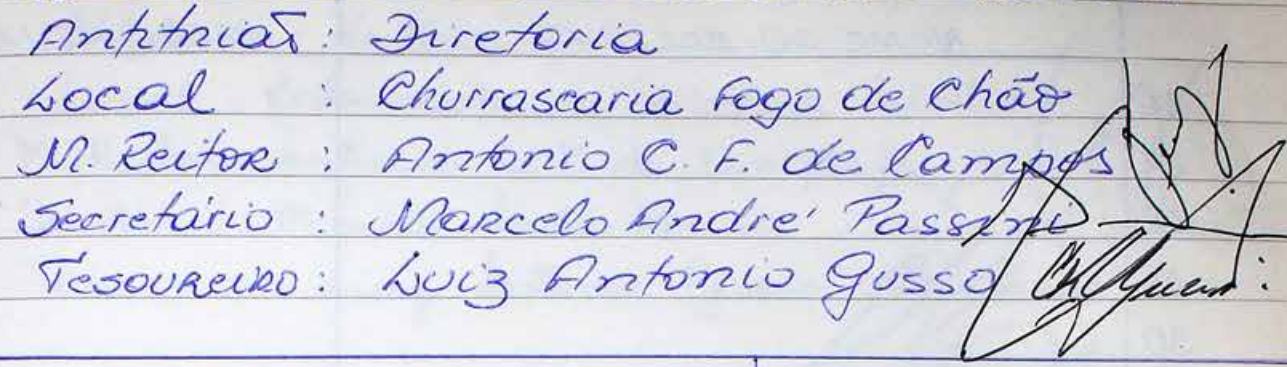 Anfitriões: Diretoria
Local : Churrascaria Fogo de Chão
M. Reitor : Antonio C. F. de Campos
Secretário : Marcelo André Passini
Tesoureiro: Luiz Antonio Gusso